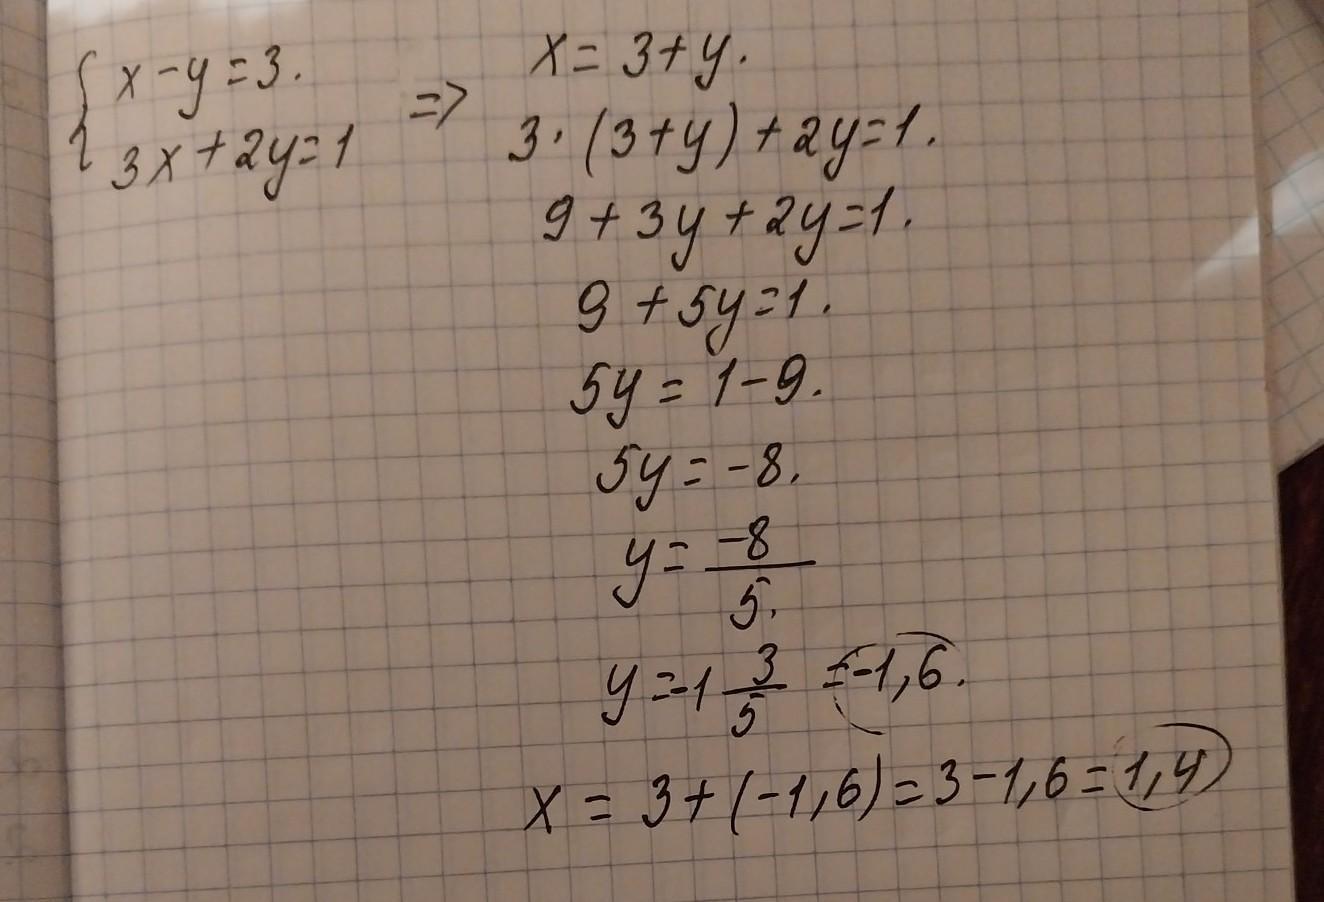 { x - y = 3.
3x + 2y = 1
=> x = 3 + y.
3 · (3 + y) + 2y = 1.
9 + 3y + 2y = 1.
9 + 5y = 1.
5y = 1 - 9.
5y = -8.
y = -8/5.
y = -1 3/5 = -1,6.
x = 3 + (-1,6) = 3 - 1,6 = 1,4